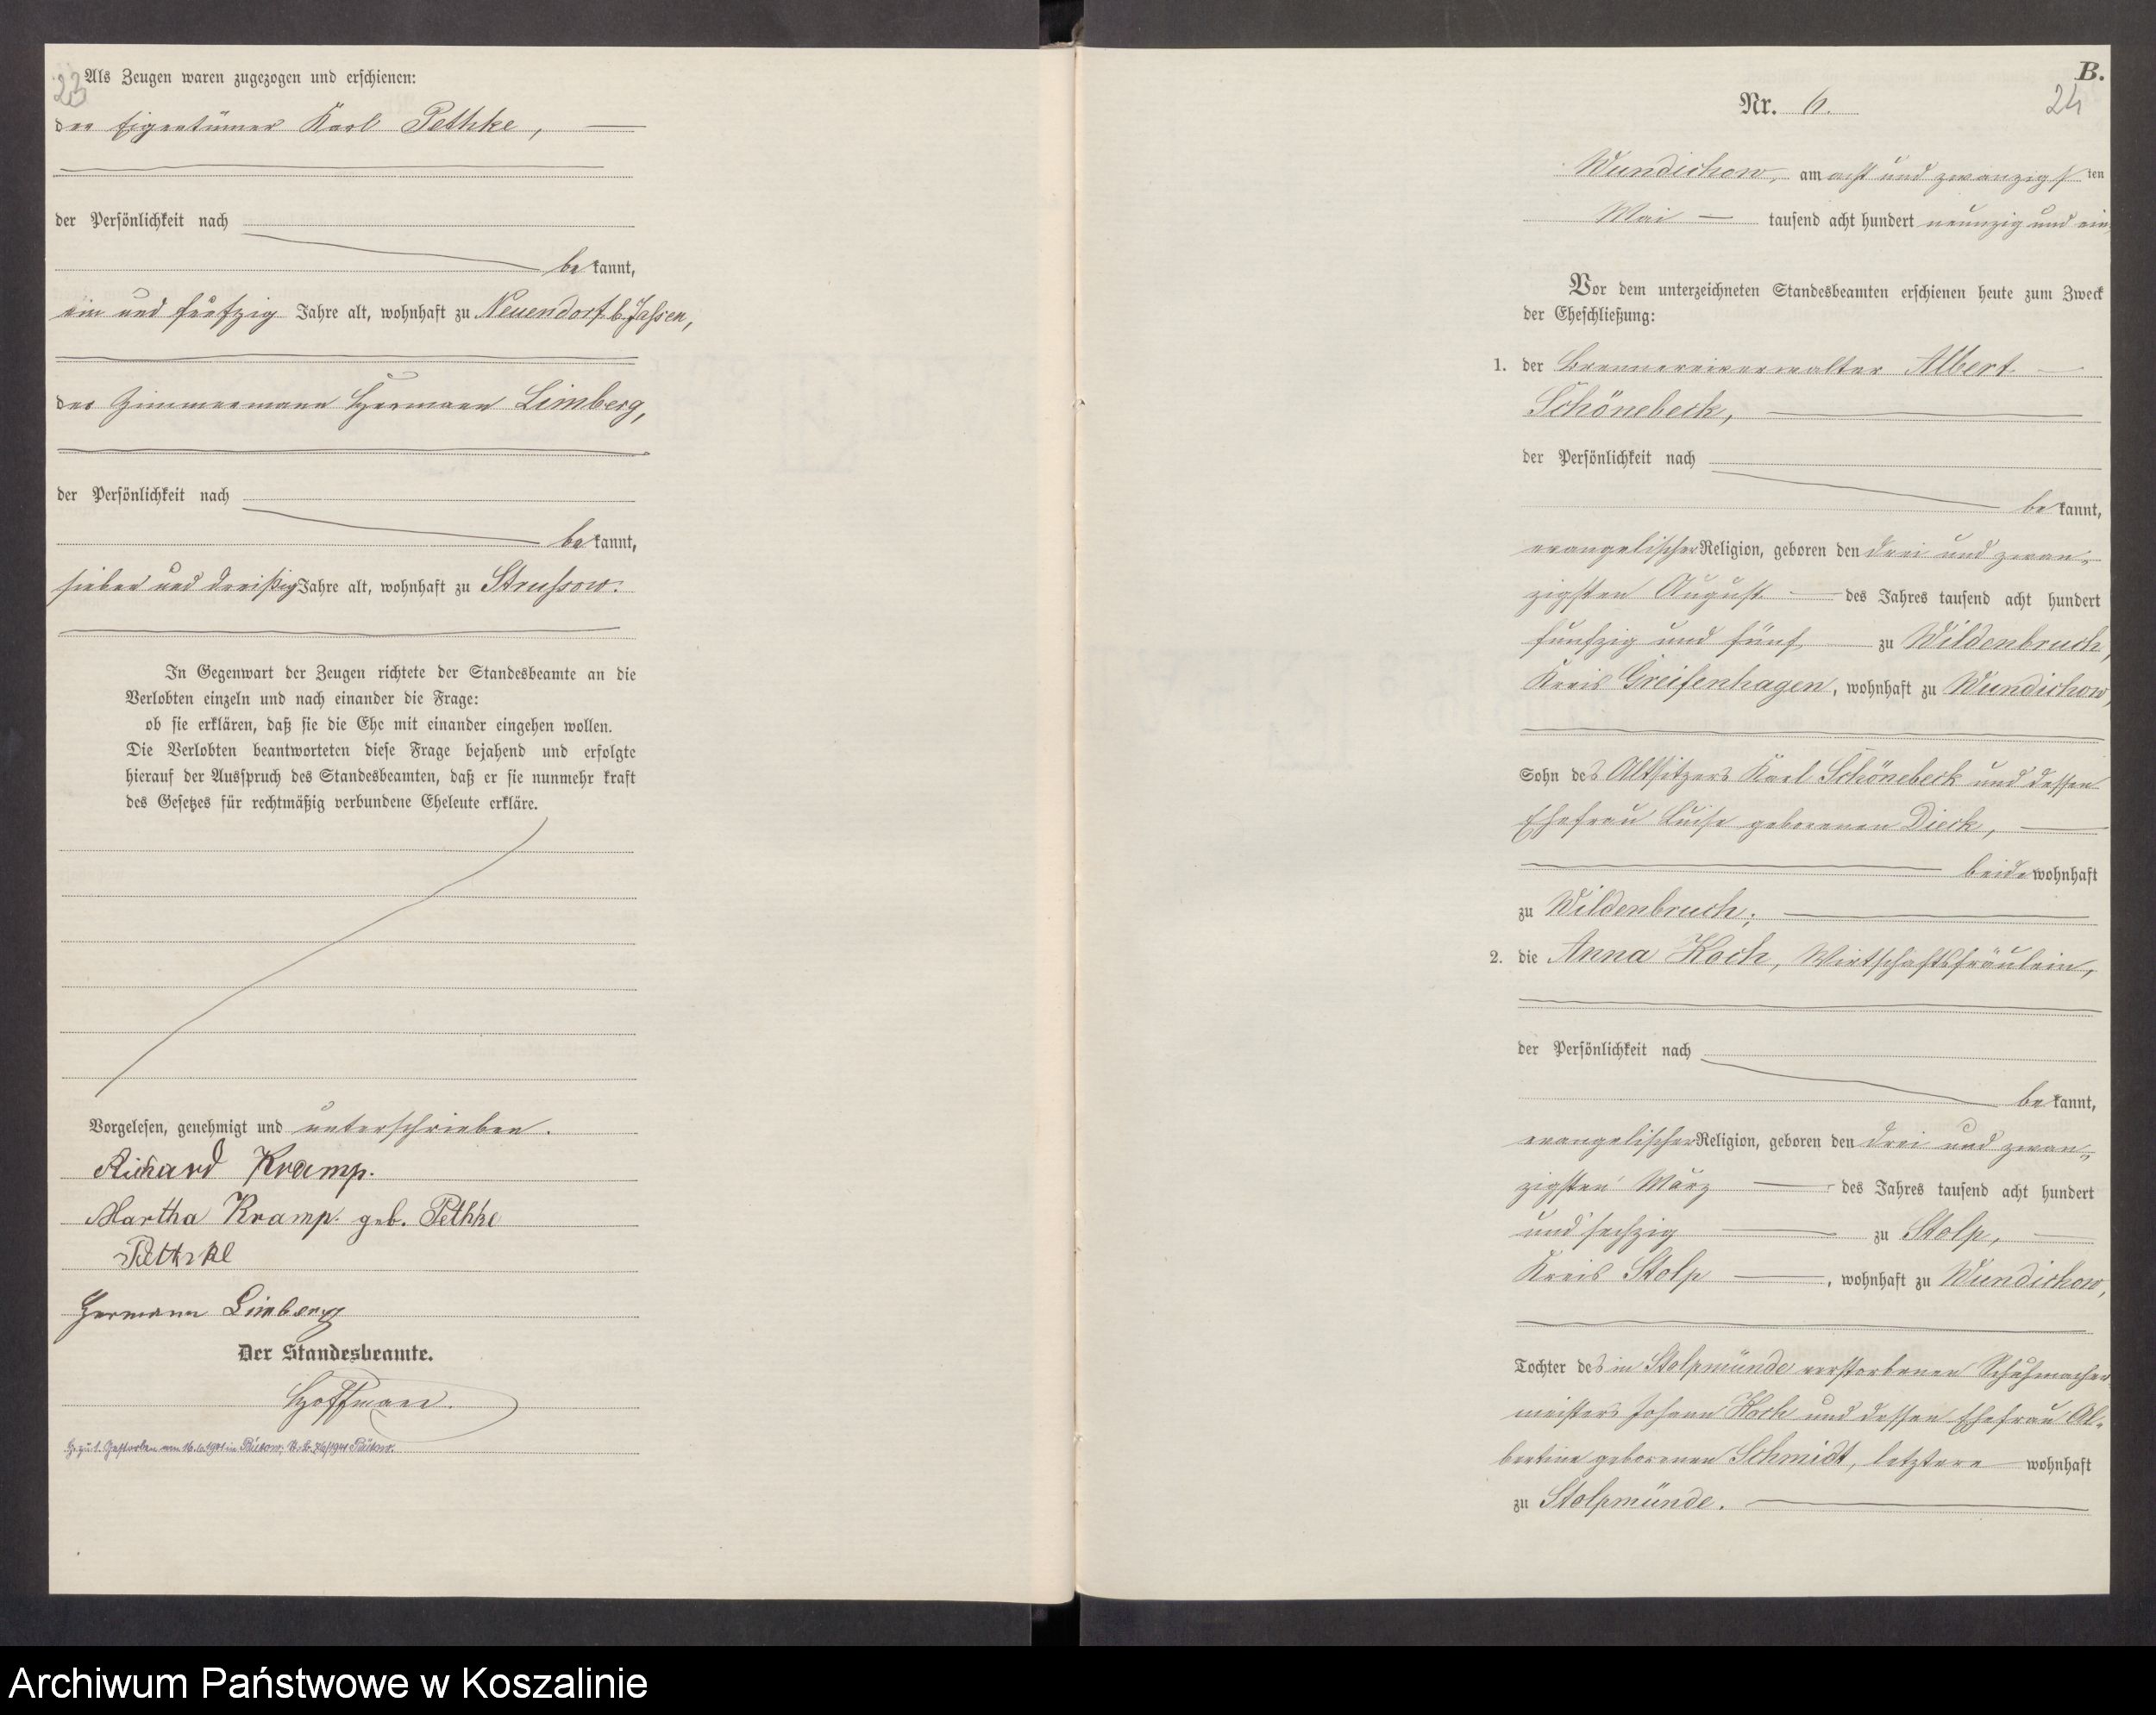 23
Als Zeugen waren zugezogen und erschienen:
der Eigentümer Karl Pethke,
der Persönlichkeit nach
be kannt,
ein und fünfzig Jahre alt, wohnhaft zu Neuendorf b. Jassen,
der Zimmermann Hermann Limberg,
der Persönlichkeit nach
be kannt,
sieben und dreißig Jahre alt, wohnhaft zu Strussow.
In Gegenwart der Zeugen richtete der Standesbeamte an die
Verlobten einzeln und nach einander die Frage:
ob sie erklären, daß sie die Ehe mit einander eingehen wollen.
Die Verlobten beantworteten diese Frage bejahend und erfolgte
hierauf der Ausspruch des Standesbeamten, daß er sie nunmehr kraft
des Gesetzes für rechtmäßig verbundene Eheleute erkläre.
Vorgelesen, genehmigt und unterschrieben.
Richard Kramp.
Martha Kramp. geb. Pethke
Hermann Limberg
Der Standesbeamte.
Hoffmann.
Gestorben am in Bütow,
B.
24
Nr. 6.
Wundichow, am acht und zwanzigsten
Mai tausend acht hundert neunzig und ein,
Vor dem unterzeichneten Standesbeamten erschienen heute zum Zweck
der Eheschließung:
1. der Brennereiverwalter Albert
Schönebeck,
der Persönlichkeit nach
be kannt,
evangelischer Religion, geboren den drei und zwan-
zigsten August des Jahres tausend acht hundert
funfzig und fünf zu Wildenbruch,
Kreis Greifenhagen, wohnhaft zu Wundichow,
Sohn des Altsitzers Karl Schönebeck und dessen
Ehefrau Luise geborenen Dieck,
beide wohnhaft
zu Wildenbruch;
2. die Anna Koch, Wirtschaftsfräulein,
der Persönlichkeit nach
be kannt,
evangelischer Religion, geboren den drei und zwan-
zigsten März des Jahres tausend acht hundert
und sechzig zu Stolp,
Kreis Stolp, wohnhaft zu Wundichow,
Tochter des in Stolpmünde verstorbenen Schuhmacher
meisters Johann Koch und dessen Ehefrau Al-
bertine geborenen Schmidt, letztere wohnhaft
zu Stolpmünde.
Archiwum Państwowe w Koszalinie